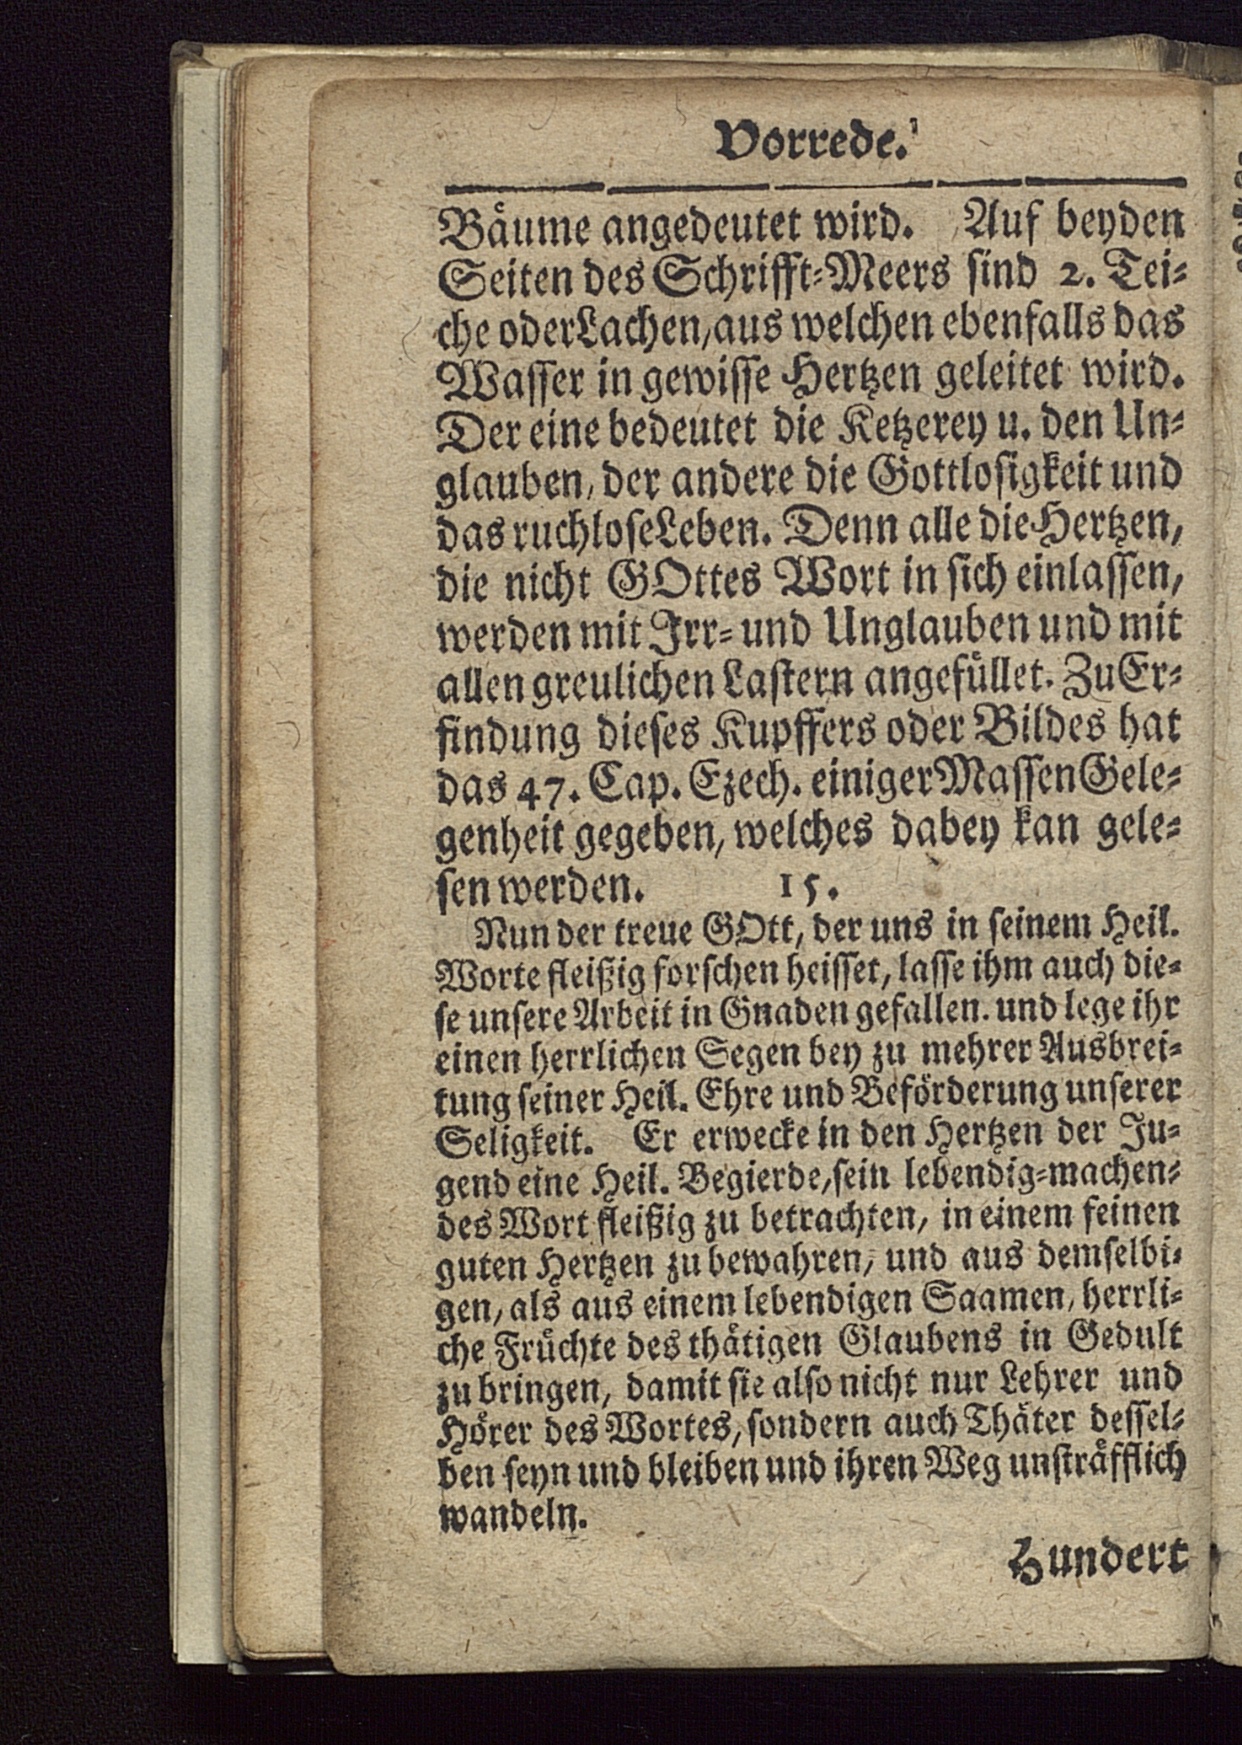 Vorrede.
Bäume angedeutet wird. Auf beyden
Seiten des Schrifft-Meers sind 2. Tei-
che oder Lachen, aus welchen ebenfalls das
Wasser in gewisse Hertzen geleitet wird.
Der eine bedeutet die Ketzerey u. den Un-
glauben, der andere die Gottlosigkeit und
das ruchlose Leben. Denn alle die Hertzen,
die nicht GOttes Wort in sich einlassen,
werden mit Irr- und Unglauben und mit
allen greulichen Lastern angefüllet. Zu Er-
findung dieses Kupffers oder Bildes hat
das 47. Cap. Ezech. einiger Massen Gele-
genheit gegeben, welches dabey kan gele-
sen werden. 15.
Nun der treue GOtt, der uns in seinem Heil.
Worte fleißig forschen heisset, lasse ihm auch die-
se unsere Arbeit in Gnaden gefallen. und lege ihr
einen herrlichen Segen bey zu mehrer Ausbrei-
tung seiner Heil. Ehre und Beförderung unserer
Seligkeit. Er erwecke in den Hertzen der Ju-
gend eine Heil. Begierde, sein lebendig-machen-
des Wort fleißig zu betrachten, in einem feinen
guten Hertzen zu bewahren, und aus demselbi-
gen, als aus einem lebendigen Saamen, herrli-
che Früchte des thätigen Glaubens in Gedult
zu bringen, damit sie also nicht nur Lehrer und
Hörer des Wortes, sondern auch Thäter dessel-
ben seyn und bleiben und ihren Weg unsträfflich
wandeln.
Hundert